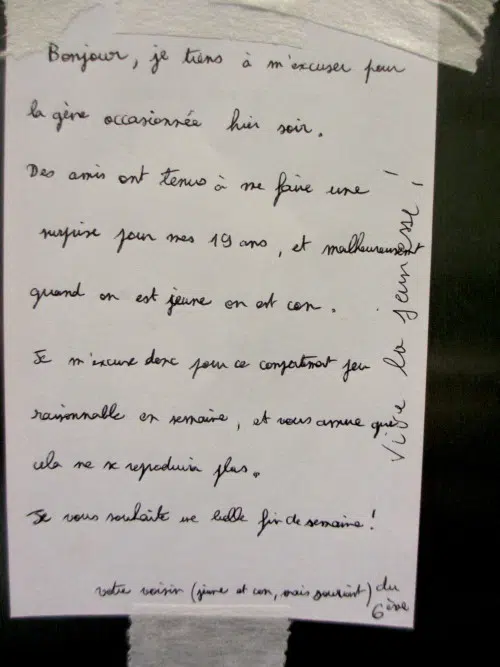 Bonjour, je tiens à m'excuser pour
la gêne occasionnée hier soir.
Des amis ont tenus à me faire une
surprise pour mes 19 ans, et malheureusement
quand on est jeune on est con.
Je m'excuse donc pour ce comportement peu
raisonnable en semaine, et vous assure que
cela ne se reproduira plus.
Je vous souhaite une belle fin de semaine !
votre voisin (jeune et con, mais souriant) du
6ème
Vive la jeunesse !